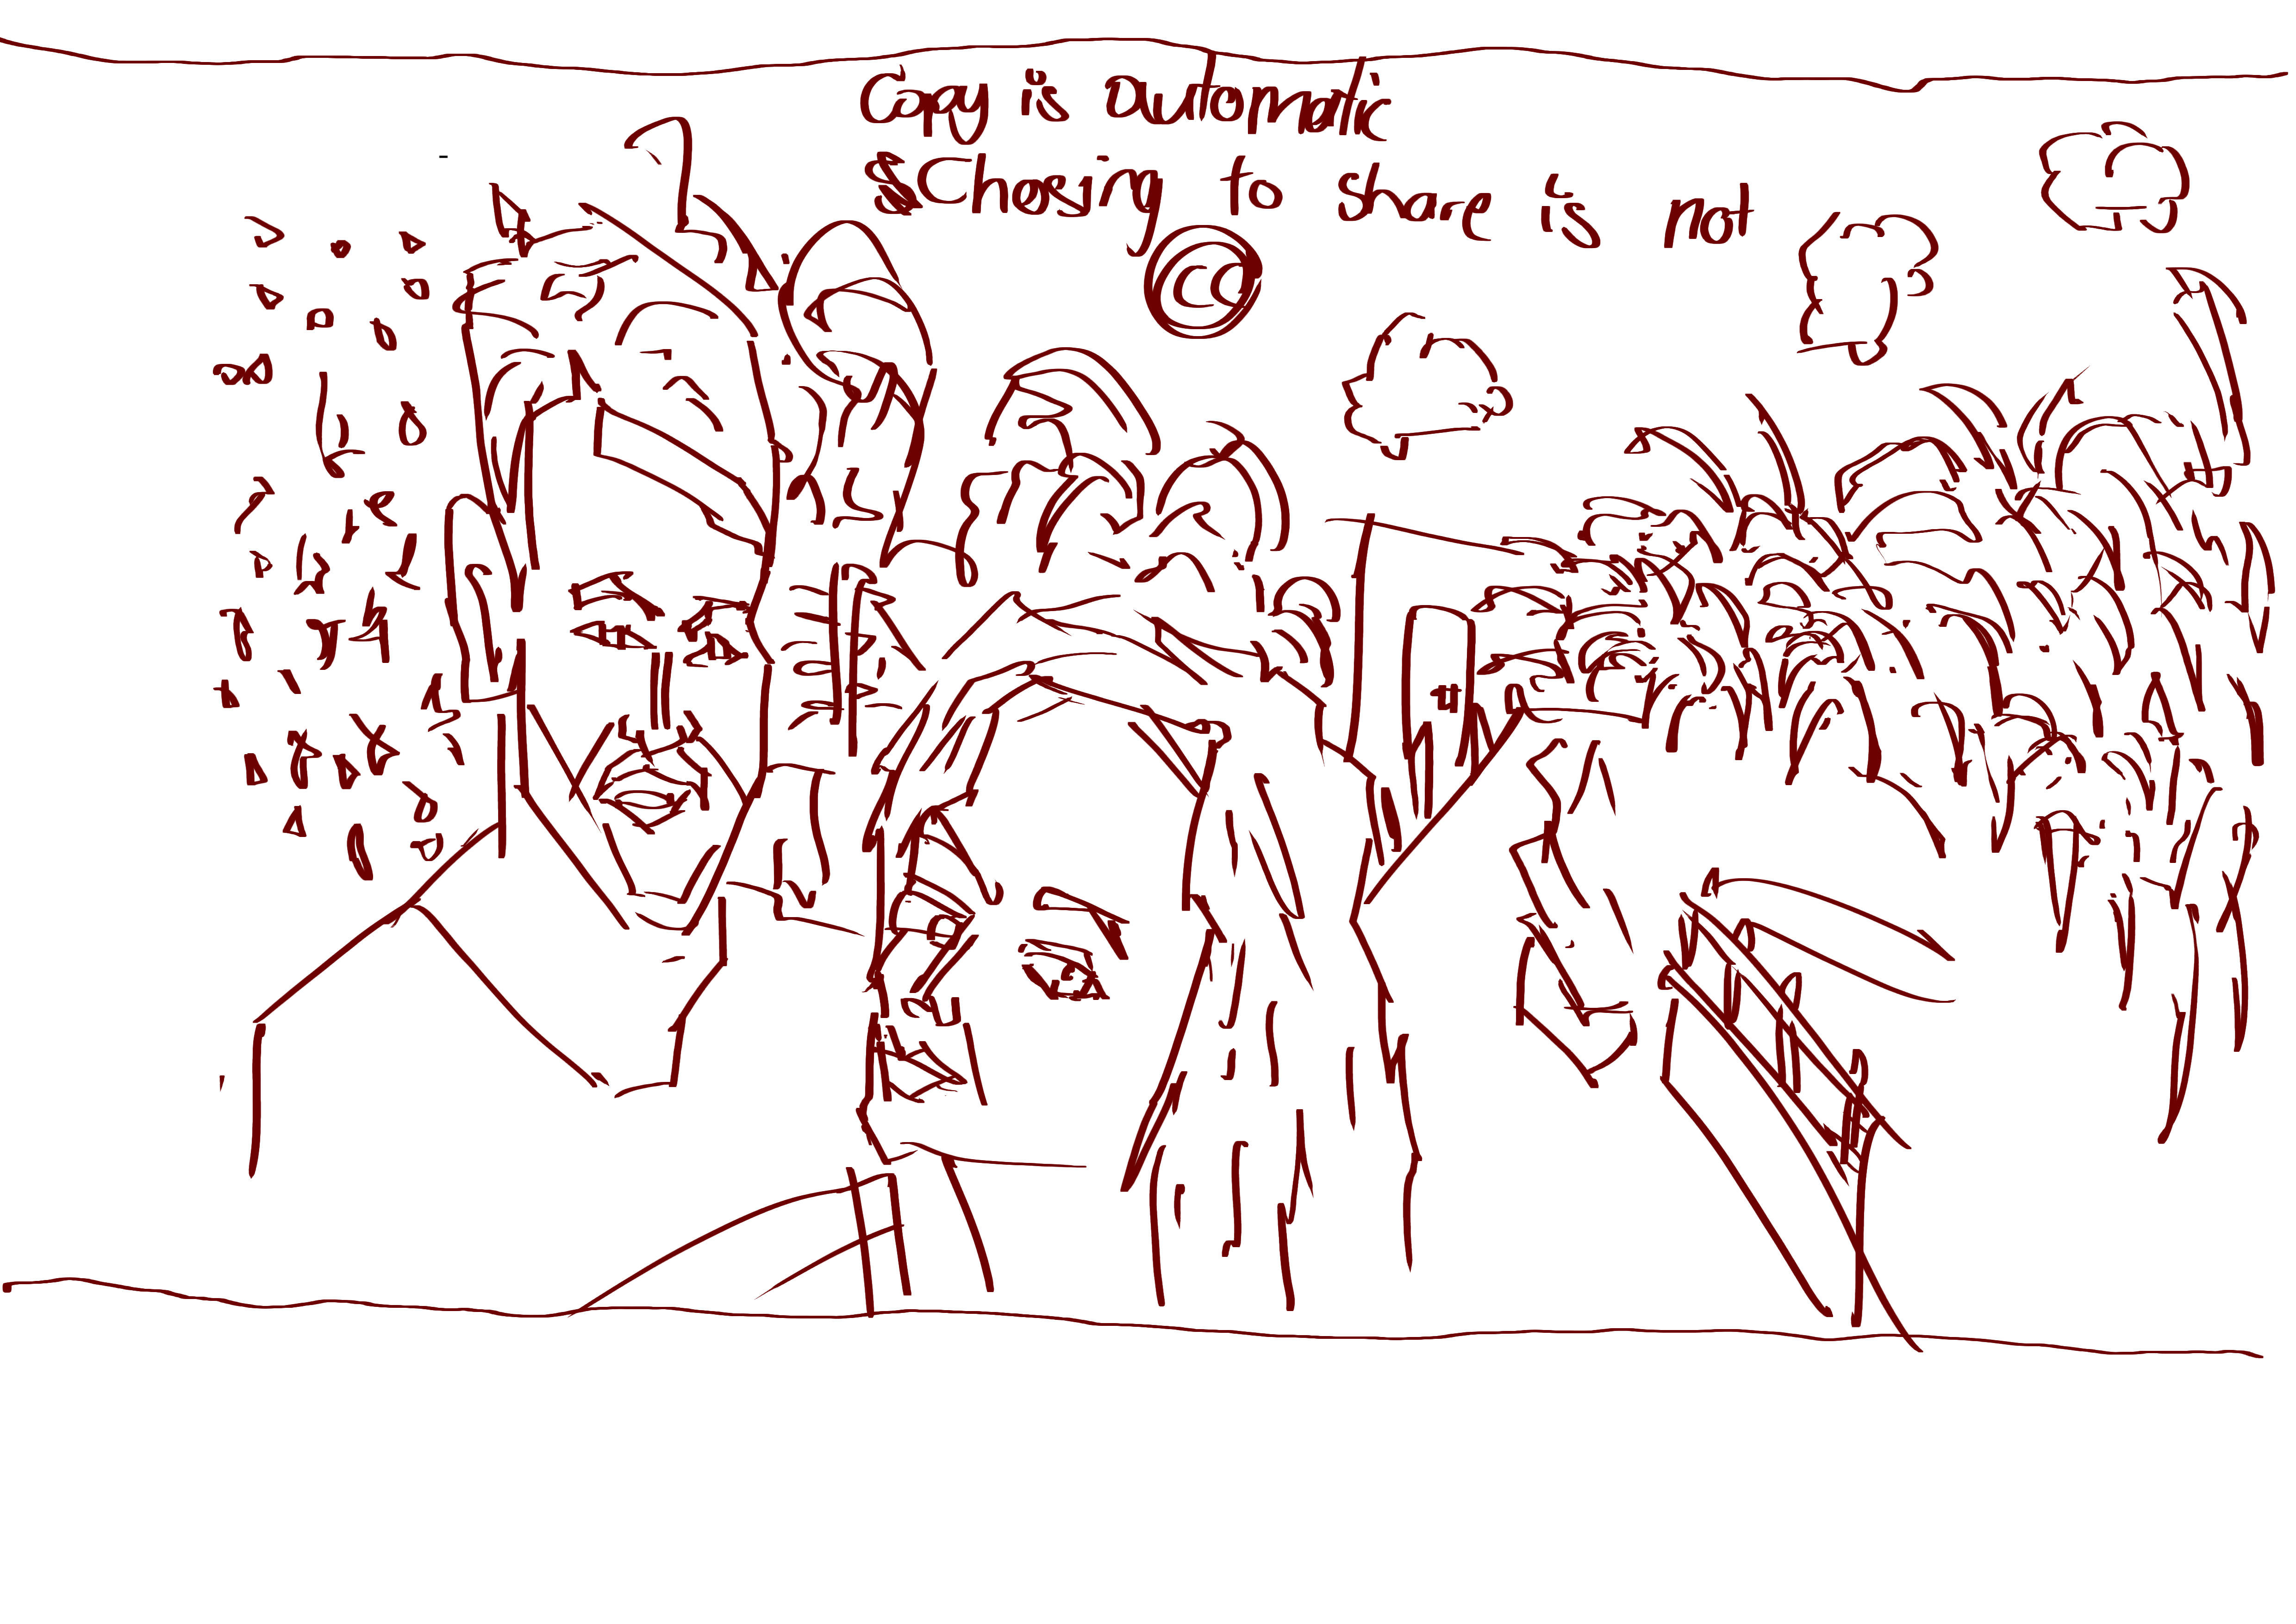 Copy is automatic
Choosing to share is not
cc